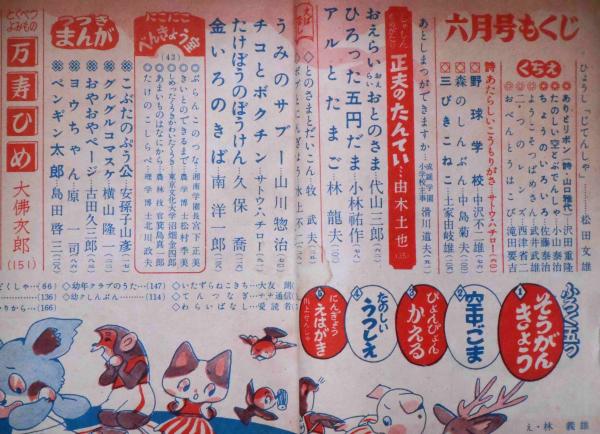 六月号もくじ
ひょうし「じてんしゃ」……松田文雄
くちえ
ありとリボン(詩・山口雅代)沢田重隆
たのしい空とぶでんしゃ…小山泰治
ちょうのいろいろ…佐藤泰治
ようこそつばめさん…武井武雄
二ひき…西津省二
おべんとうはこび…滝田要吉
詩 あたらしいこうもりがさ…サトウ・ハチロー
野球学校…中沢不二雄
森のしんぶん…中島菊夫
三びきこねこ…土家由岐雄
あとしまつができますか…成蹊学園小学校主事 滑川道夫
しゃしんものがたり
正夫のたんてい…由木土也
おえらいおとのさま…代山三郎
ひろった五円だま…小林祐作
アルとたまご…林龍夫
とのさまとだいこん…牧武夫
うみのサブー…山川惣治
チコとポクチン…サトウ・ハチロー
たけぼうのぼうけん…久保喬
金いろのきば…南洋一郎
にこにこべんきょう室
(43)
ぶらんこのつな…湘南学園長 宮下正美
きいとのできるまで…農学博士 松村季美
しめったうきかわいたうき…東京文化大学 沼畑金四郎
あまいものはなにから…農林技官 箕島真高
たけのこしらべ…理学博士 北川政夫
つづきまんが
こぶたのぷう公…安孫子山彦
グルグルコマスケ…横山隆一
おやおやページ…古田久三郎
ヨウちゃん…原一司
ペンギン太郎…島田啓三
とくべつよみもの
万寿ひめ
大佛次郎
(151)
ふろく五つ
1 そうがんきょう
2 空中ごま
3 ぴょんぴょんかえる
4 たのしいうつしえ
5 にんぎょうえはがき
どくしゃ…(66)
(136)
(166)
幼年クラブのうた…(147)
幼クしんぶん…(114)
いたずらねこきち…大友朗
てんつなぎ…サチ通信
わらいばなし…愛読者
え・林義雄